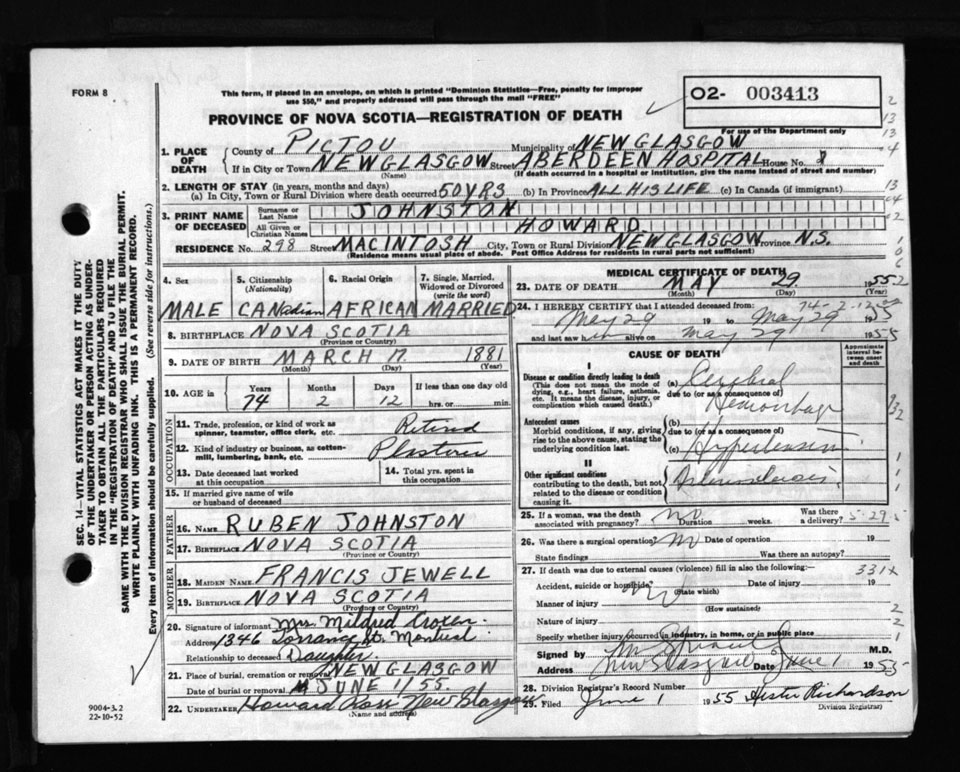 FORM 8
This form, if placed in an envelope, on which is printed "Dominion Statistics—Free, penalty for improper
use $50," and properly addressed will pass through the mail "FREE"
PROVINCE OF NOVA SCOTIA—REGISTRATION OF DEATH
02- 003413
For use of the Department only
1. PLACE OF DEATH
County of PICTOU Municipality of NEW GLASGOW
If in City or Town NEW GLASGOW Street ABERDEEN HOSPITAL House No.
(Name) (If death occurred in a hospital or institution, give the name instead of street and number)
2. LENGTH OF STAY (in years, months and days)
(a) In City, Town or Rural Division where death occurred 50 YRS (b) In Province ALL HIS LIFE (c) In Canada (if immigrant)
3. PRINT NAME OF DECEASED
Surname or Last Name JOHNSTON
All Given or Christian Names HOWARD
RESIDENCE No. 298 Street MACINTOSH City, Town or Rural Division NEW GLASGOW Province N.S.
(Residence means usual place of abode. Post Office Address for residents in rural parts not sufficient)
4. Sex 5. Citizenship (Nationality) 6. Racial Origin 7. Single, Married, Widowed or Divorced (write the word)
MALE CANadian AFRICAN MARRIED
8. BIRTHPLACE NOVA SCOTIA
(Province or Country)
9. DATE OF BIRTH MARCH 17 1881
(Month) (Day) (Year)
10. AGE in Years Months Days If less than one day old
74 2 12 hrs. or min.
OCCUPATION
11. Trade, profession, or kind of work as
spinner, teamster, office clerk, etc. Retired
12. Kind of industry or business, as cotten-
mill, lumbering, bank, etc.
13. Date deceased last worked
at this occupation
14. Total yrs. spent in
this occupation
15. If married give name of wife
or husband of deceased
FATHER
16. NAME RUBEN JOHNSTON
17. BIRTHPLACE NOVA SCOTIA
(Province or Country)
MOTHER
18. MAIDEN NAME FRANCIS JEWELL
19. BIRTHPLACE NOVA SCOTIA
(Province or Country)
20. Signature of informant Mrs. Mildred
Address 1346 Torrance St. Montreal
Relationship to deceased Daughter
21. Place of burial, cremation or removal NEW GLASGOW
Date of burial or removal JUNE 1/55.
22. UNDERTAKER Howard Ross New Glasgow
(Name and address)
9004-3.2
22-10-52
SEC. 14—VITAL STATISTICS ACT MAKES IT THE DUTY
OF THE UNDERTAKER OR PERSON ACTING AS UNDER-
TAKER TO OBTAIN ALL THE PARTICULARS REQUIRED
IN THE "REGISTRATION OF DEATH" AND TO FILE THE
SAME WITH THE DIVISION REGISTRAR WHO SHALL ISSUE THE BURIAL PERMIT.
WRITE PLAINLY WITH UNFADING INK. THIS IS A PERMANENT RECORD.
Every item of information should be carefully supplied. (See reverse side for instructions.)
MEDICAL CERTIFICATE OF DEATH
23. DATE OF DEATH MAY 29 1955
(Month) (Day) (Year)
24. I HEREBY CERTIFY that I attended deceased from: 74-2-12
May 29 19 to May 29 1955
and last saw him alive on May 29 1955
CAUSE OF DEATH
Approximate interval between onset and death
I
Disease or condition directly leading to death
(This does not mean the mode of
dying, e.g., heart failure, asthenia,
etc. It means the disease, injury, or
complication which caused death.)
(a) Cerebral
due to (or as a consequence of)
Hemorrhage
Antecedent causes
Morbid conditions, if any, giving
rise to the above cause, stating the
underlying condition last.
(b)
due to (or as a consequence of)
(c) Hypertension
II
Other significant conditions
contributing to the death, but not
related to the disease or condition
causing it.
Arteriosclerosis
25. If a woman, was the death
associated with pregnancy? no Duration weeks. Was there
a delivery? 5-29-5
26. Was there a surgical operation? no Date of operation 19
State findings Was there an autopsy?
27. If death was due to external causes (violence) fill in also the following:— 331X
Accident, suicide or homicide? no Date of injury 19
(State which)
Manner of injury
(How sustained)
Nature of injury
Specify whether injury occurred in industry, in home, or in public place
Signed by M.D.
Address New Glasgow Date June 1 1955
28. Division Registrar's Record Number
29. Filed June 1 1955 Hester Richardson
(Division Registrar)